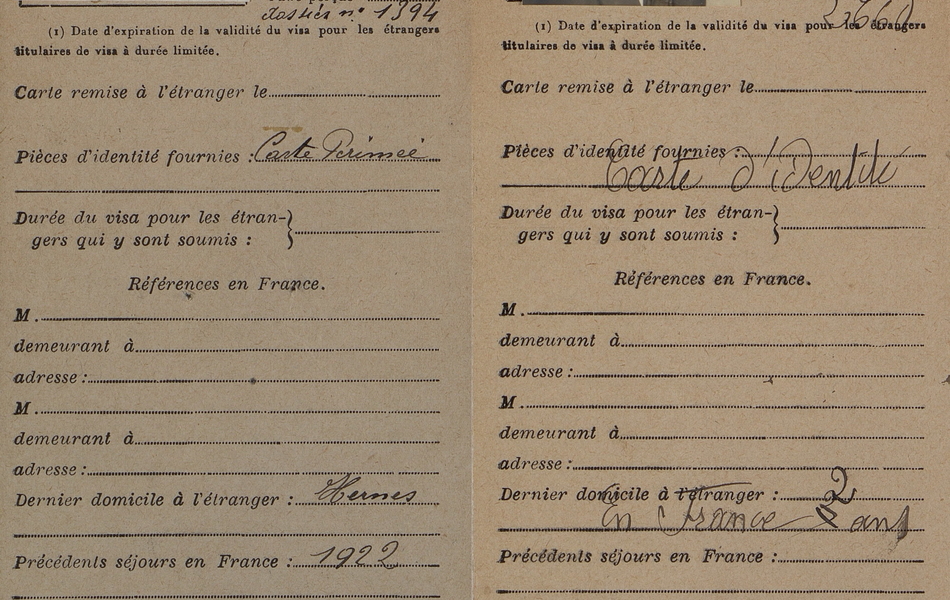 dossier n° 1394
(1) Date d'expiration de la validité du visa pour les étrangers
titulaires de visa à durée limitée.
Carte remise à l'étranger le
Pièces d'identité fournies : Carte Périmée
Durée du visa pour les étran-}
gers qui y sont soumis :
Références en France.
M.
demeurant à
adresse :
M.
demeurant à
adresse :
Dernier domicile à l'étranger : Hernes
Précédents séjours en France : 1922
(1) Date d'expiration de la validité du visa pour les étrangers
titulaires de visa à durée limitée.
Carte remise à l'étranger le
Pièces d'identité fournies :
Carte d'identité
Durée du visa pour les étran-}
gers qui y sont soumis :
Références en France.
M.
demeurant à
adresse :
M.
demeurant à
adresse :
Dernier domicile à l'étranger : 2
En France ans
Précédents séjours en France :